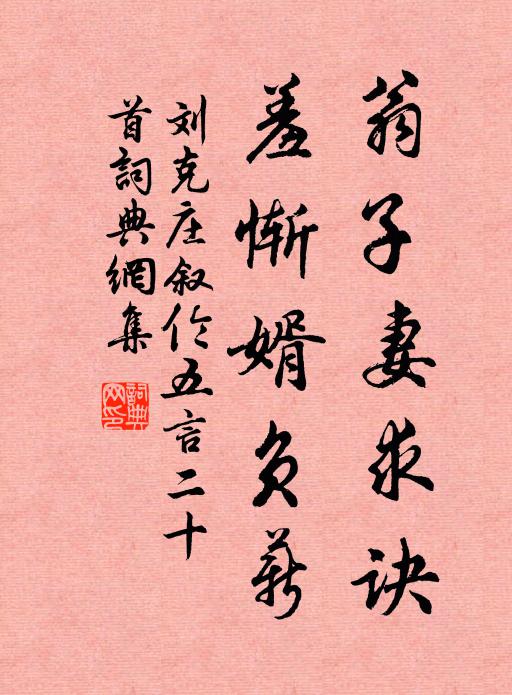 翁子妻求诀
羞惭婿负薪
刘克庄叙伦五言二十
首詞典網集
詞典网印